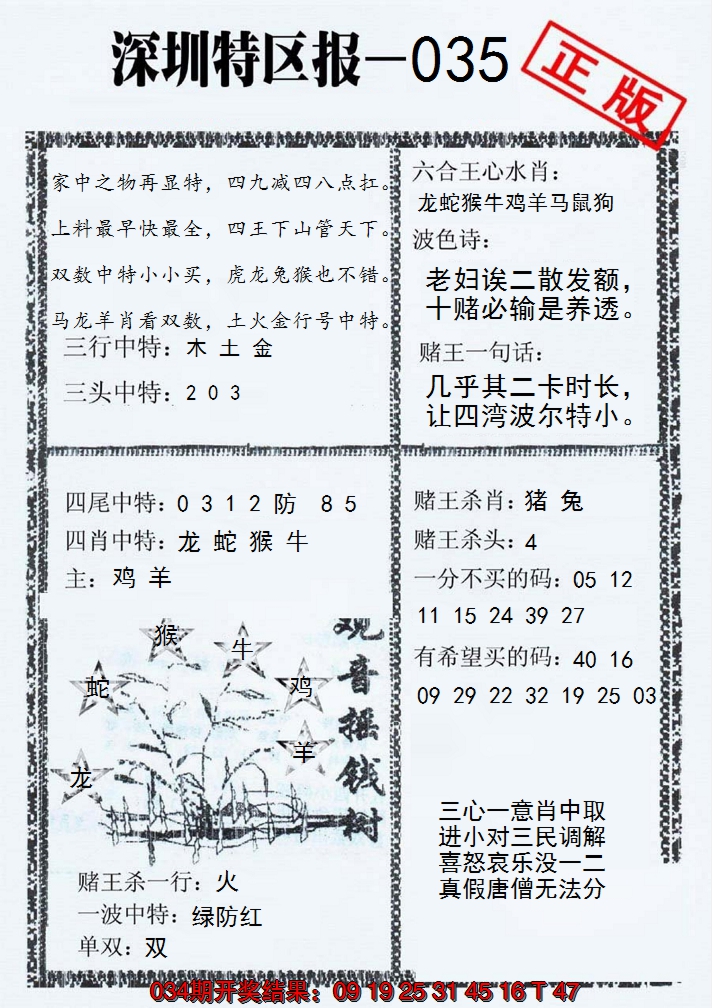 深圳特区报—035
正版
家中之物再显特，四九减四八点扛。
上料最早快最全，四王下山管天下。
双数中特小小买，虎龙兔猴也不错。
马龙羊肖看双数，土火金行号中特。
三行中特：木 土 金
三头中特：2 0 3
六合王心水肖：
龙蛇猴牛鸡羊马鼠狗
波色诗：
老妇诶二散发额，
十赌必输是养透。
赌王一句话：
几乎其二卡时长，
让四湾波尔特小。
四尾中特：0 3 1 2 防 8 5
四肖中特：龙 蛇 猴 牛
主：鸡 羊
猴
牛
蛇
鸡
羊
龙
观音摇钱树
赌王杀一行：火
一波中特：绿防红
单双：双
赌王杀肖：猪 兔
赌王杀头：4
一分不买的码：05 12
11 15 24 39 27
有希望买的码：40 16
09 29 22 32 19 25 03
三心一意肖中取
进小对三民调解
喜怒哀乐没一二
真假唐僧无法分
034期开奖结果：09 19 25 31 45 16 T 47